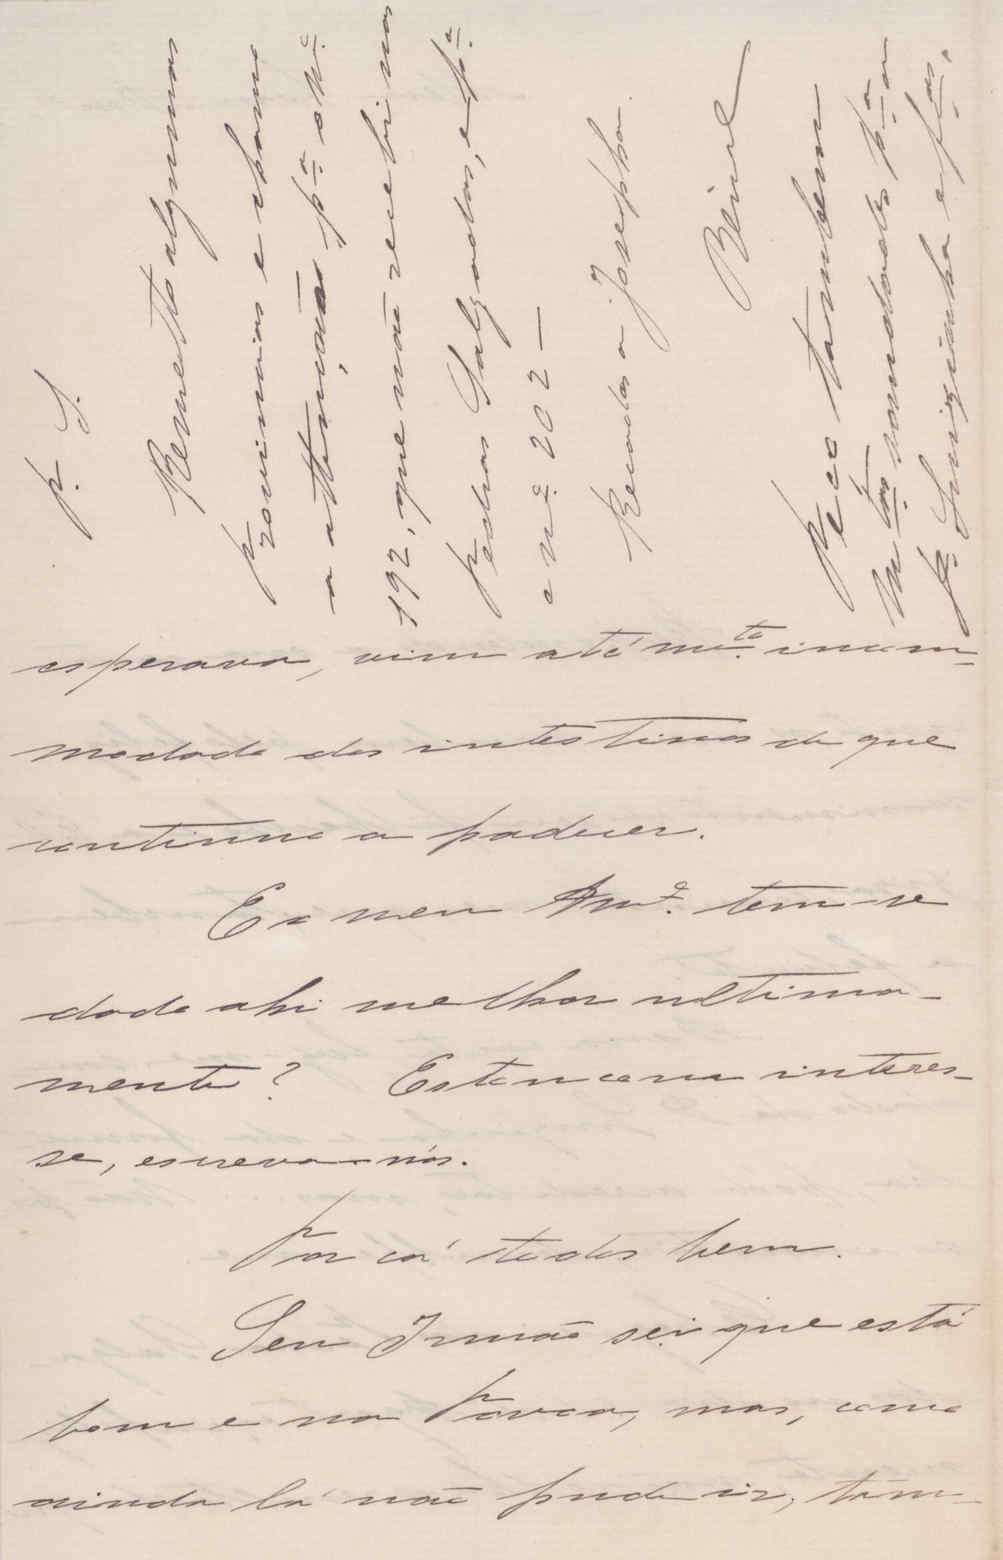 P. S.
Remetto algumas
provincias e chamo
a attenção p.ª o N.º
192, que não recebi nas
Pedras Salgadas, e p.ª
o N.º 202 —
Recados a Josepha.
Peço tambem
m.tos
esperava, vim até m.to incom-
modado dos intestinos de que
continuo a padecer.
E o meu Am.º tem-se
dado ahi melhor ultima-
mente? Estancana interes-
se, escreva-nós.
Por cá todos bem.
Seu Irmão sei que está
bom e na Povoa, mas, como
ainda lá não pude ir, tam-